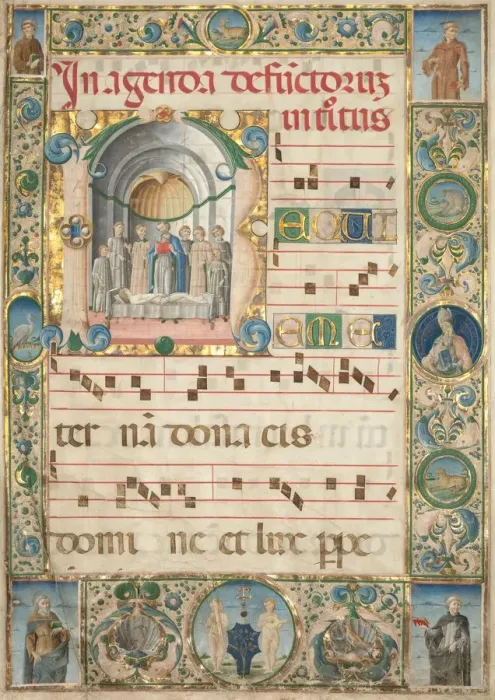 In agenda defūctoruʒ
introitus
EQUI
EM E
ter nā dona eis
domi ne et lux ppe